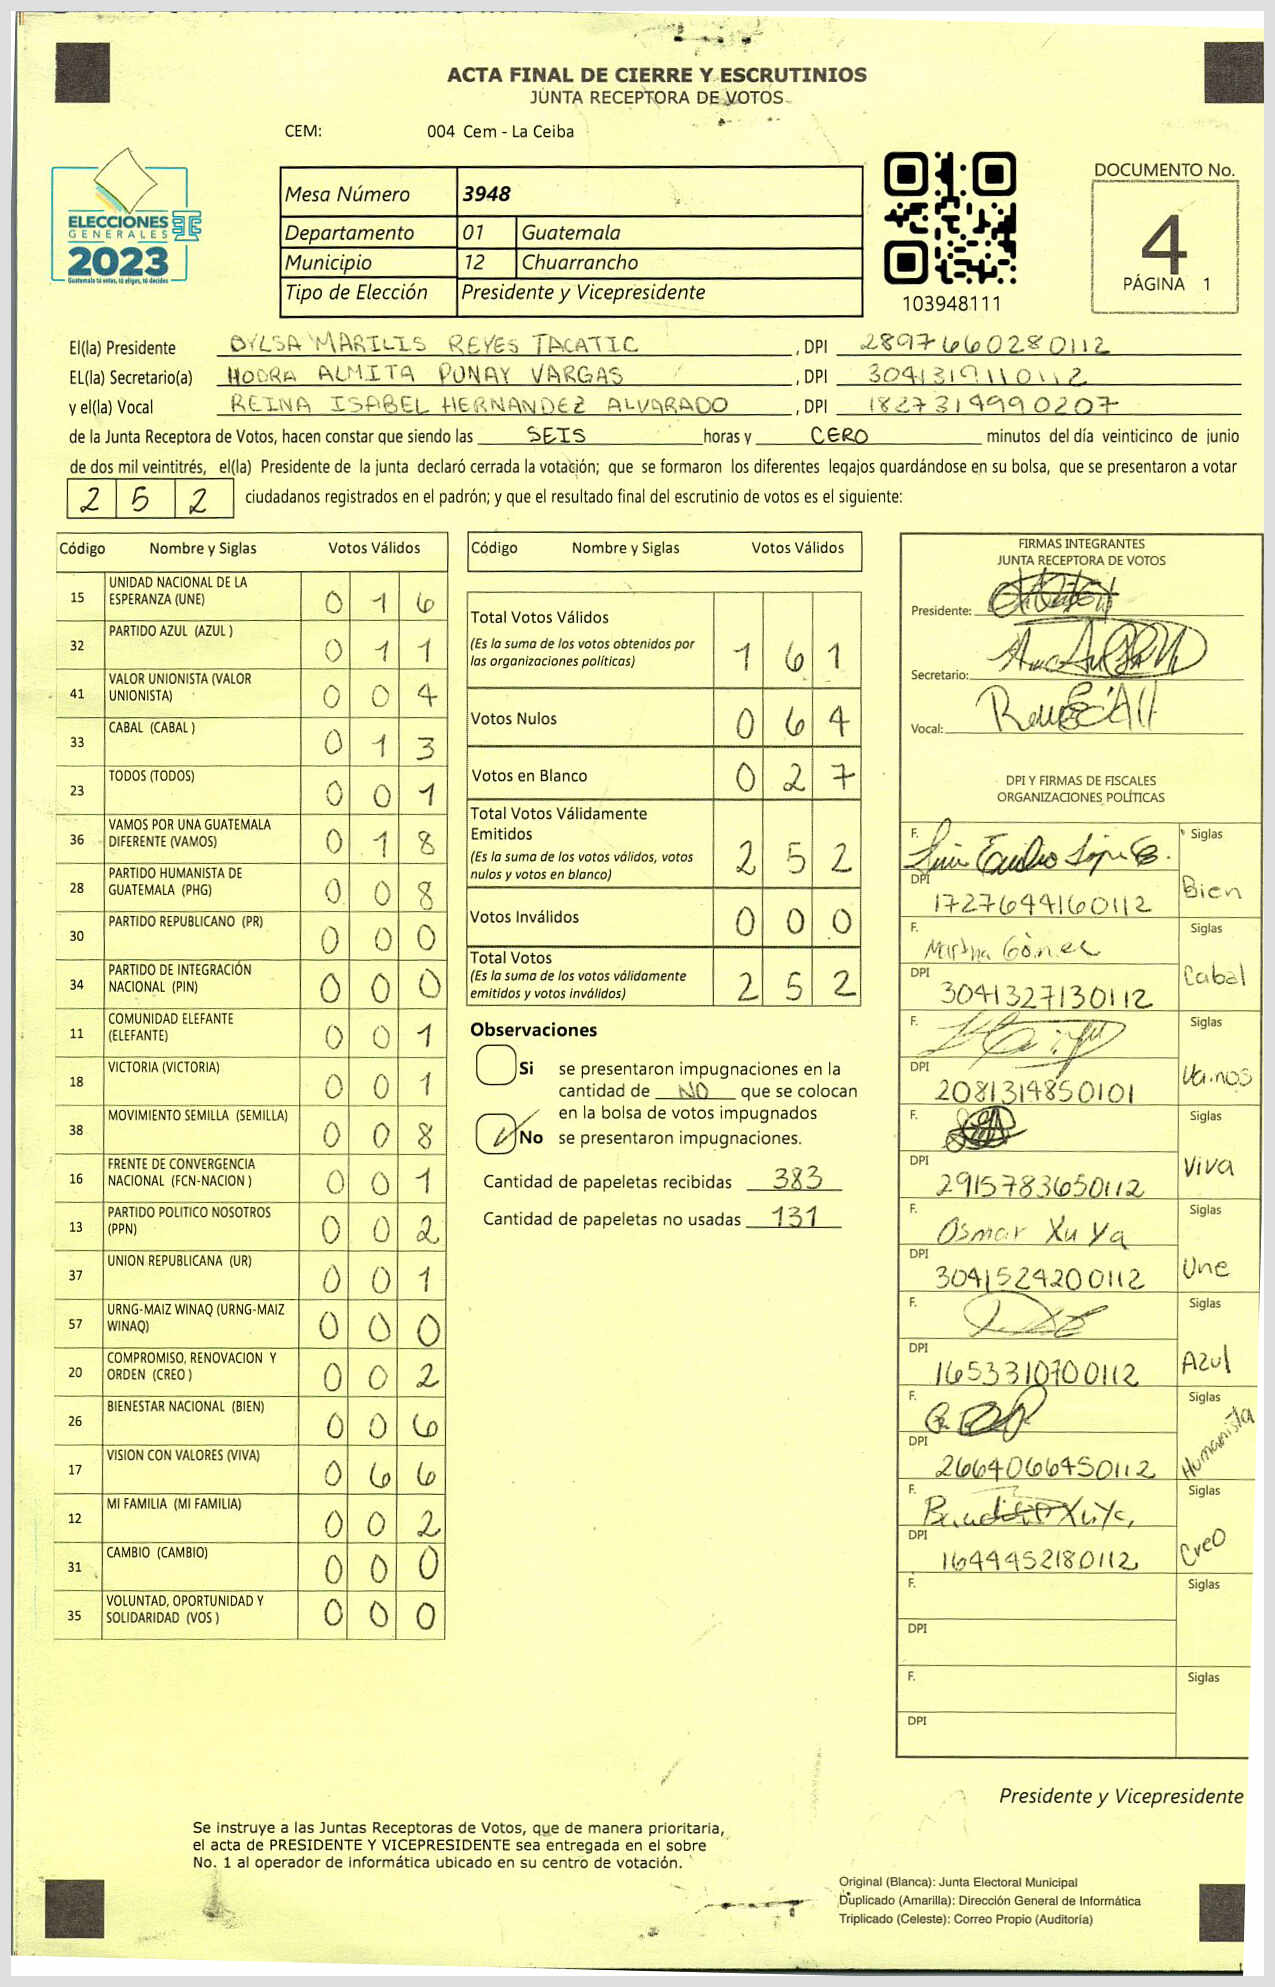 ACTA FINAL DE CIERRE Y ESCRUTINIOS
JUNTA RECEPTORA DE VOTOS
CEM: 004 Cem - La Ceiba
ELECCIONES
GENERALES
2023
Guatemala tú votas, tú eliges, tú decides
Mesa Número 3948
Departamento 01 Guatemala
Municipio 12 Chuarrancho
Tipo de Elección Presidente y Vicepresidente
103948111
DOCUMENTO No.
4
PÁGINA 1
El(la) Presidente DYLSA MARILIS REYES TACATIC , DPI 2897660280112
EL(la) Secretario(a) HODRA ALMITA PUNAY VARGAS , DPI 3041319110112
y el(la) Vocal REINA ISABEL HERNANDEZ ALVARADO , DPI 1827314990207
de la Junta Receptora de Votos, hacen constar que siendo las SEIS horas y CERO minutos del día veinticinco de junio
de dos mil veintitrés, el(la) Presidente de la junta declaró cerrada la votación; que se formaron los diferentes legajos guardándose en su bolsa, que se presentaron a votar
252 ciudadanos registrados en el padrón; y que el resultado final del escrutinio de votos es el siguiente:
Código Nombre y Siglas Votos Válidos
15 UNIDAD NACIONAL DE LA ESPERANZA (UNE) 0 1 6
32 PARTIDO AZUL (AZUL ) 0 1 1
41 VALOR UNIONISTA (VALOR UNIONISTA) 0 0 4
33 CABAL (CABAL ) 0 1 3
23 TODOS (TODOS) 0 0 1
36 VAMOS POR UNA GUATEMALA DIFERENTE (VAMOS) 0 1 8
28 PARTIDO HUMANISTA DE GUATEMALA (PHG) 0 0 8
30 PARTIDO REPUBLICANO (PR) 0 0 0
34 PARTIDO DE INTEGRACIÓN NACIONAL (PIN) 0 0 0
11 COMUNIDAD ELEFANTE (ELEFANTE) 0 0 1
18 VICTORIA (VICTORIA) 0 0 1
38 MOVIMIENTO SEMILLA (SEMILLA) 0 0 8
16 FRENTE DE CONVERGENCIA NACIONAL (FCN-NACION ) 0 0 1
13 PARTIDO POLITICO NOSOTROS (PPN) 0 0 2
37 UNION REPUBLICANA (UR) 0 0 1
57 URNG-MAIZ WINAQ (URNG-MAIZ WINAQ) 0 0 0
20 COMPROMISO, RENOVACION Y ORDEN (CREO ) 0 0 2
26 BIENESTAR NACIONAL (BIEN) 0 0 6
17 VISION CON VALORES (VIVA) 0 6 6
12 MI FAMILIA (MI FAMILIA) 0 0 2
31 CAMBIO (CAMBIO) 0 0 0
35 VOLUNTAD, OPORTUNIDAD Y SOLIDARIDAD (VOS ) 0 0 0
Código Nombre y Siglas Votos Válidos
Total Votos Válidos
(Es la suma de los votos obtenidos por las organizaciones políticas) 1 6 1
Votos Nulos 0 6 4
Votos en Blanco 0 2 7
Total Votos Válidamente Emitidos
(Es la suma de los votos válidos, votos nulos y votos en blanco) 2 5 2
Votos Inválidos 0 0 0
Total Votos
(Es la suma de los votos válidamente emitidos y votos inválidos) 2 5 2
Observaciones
Si se presentaron impugnaciones en la
cantidad de NO que se colocan
en la bolsa de votos impugnados
No se presentaron impugnaciones.
Cantidad de papeletas recibidas 383
Cantidad de papeletas no usadas 131
FIRMAS INTEGRANTES
JUNTA RECEPTORA DE VOTOS
Presidente:
Secretario:
Vocal:
DPI Y FIRMAS DE FISCALES
ORGANIZACIONES POLÍTICAS
F. Siglas
DPI 1727644160112 Bien
F. Martha Gómez Siglas
DPI 3041327130112 Cabal
F. Siglas
DPI 2081314850101 Vamos
F. Siglas
DPI 2915783650112 Viva
F. Osmar Xuya Siglas
DPI 3041524200112 Une
F. Siglas
DPI 1653310700112 Azul
F. Siglas
DPI 2664066450112 Humanista
F. Siglas
DPI 1644452180112 Creo
F. Siglas
DPI
F. Siglas
DPI
Presidente y Vicepresidente
Se instruye a las Juntas Receptoras de Votos, que de manera prioritaria,
el acta de PRESIDENTE Y VICEPRESIDENTE sea entregada en el sobre
No. 1 al operador de informática ubicado en su centro de votación.
Original (Blanca): Junta Electoral Municipal
Duplicado (Amarilla): Dirección General de Informática
Triplicado (Celeste): Correo Propio (Auditoría)